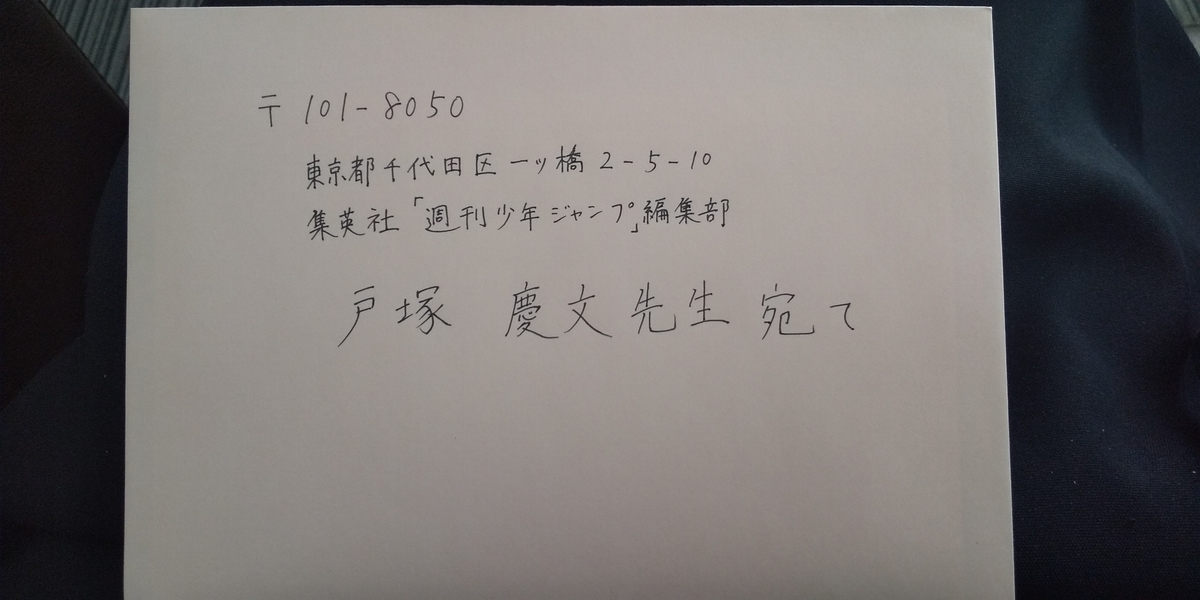 〒101-8050
東京都千代田区一ッ橋2-5-10
集英社「週刊少年ジャンプ」編集部
戸塚 慶文先生 宛て